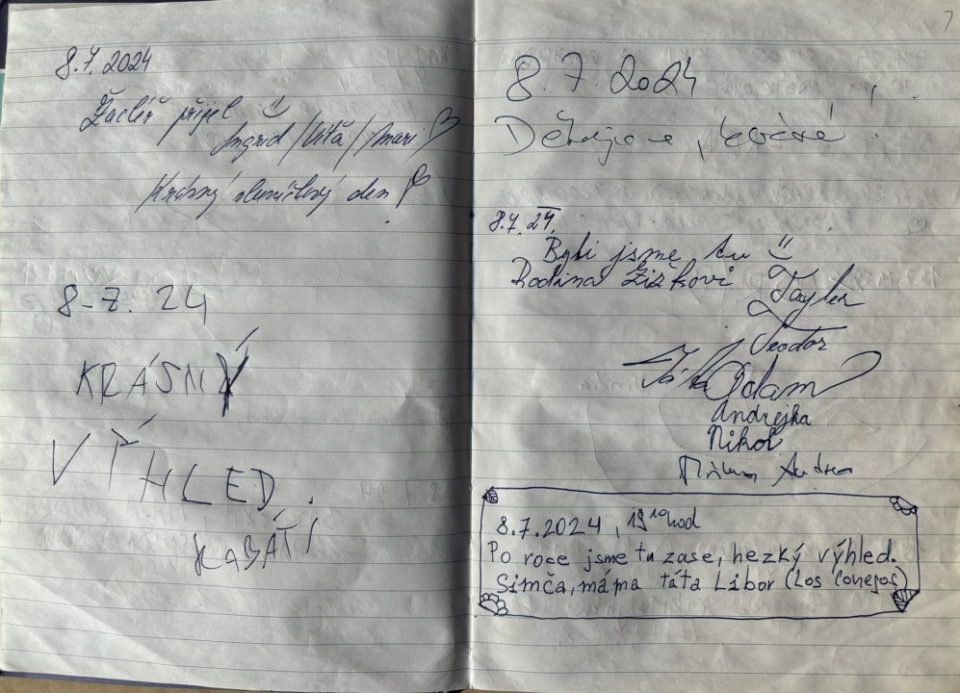 8.7.2024
Žacléř přijel
Ingrid / Víťa /
Krásný sluníčkový den
8-7. 24
KRÁSNÝ
VÝHLED.
KABÁTI
7
8.7.2024
Děkujeme,
8.7.24.
Byli jsme tu
Rodina Žižkovi
Taylor
Teodor
Adam
Andrejka
Nikol
Andrea
8.7.2024, 19¹⁰hod
Po roce jsme tu zase, hezký výhled.
Simča, máma táta Libor (Los Conejos)